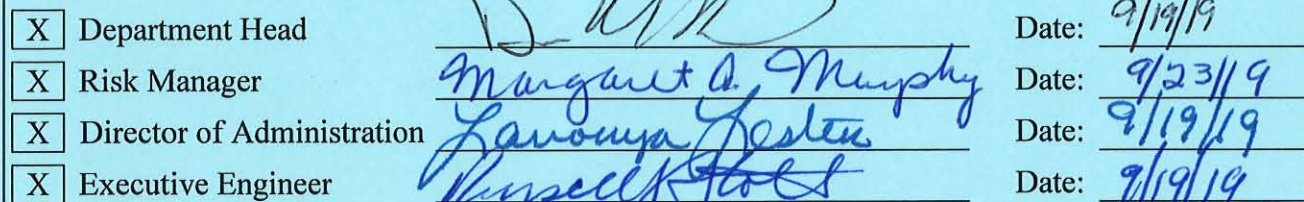 X Department Head Date: 9/19/19
X Risk Manager Margaret A. Murphy Date: 9/23/19
X Director of Administration Date: 9/19/19
X Executive Engineer Russell Date: 9/19/19